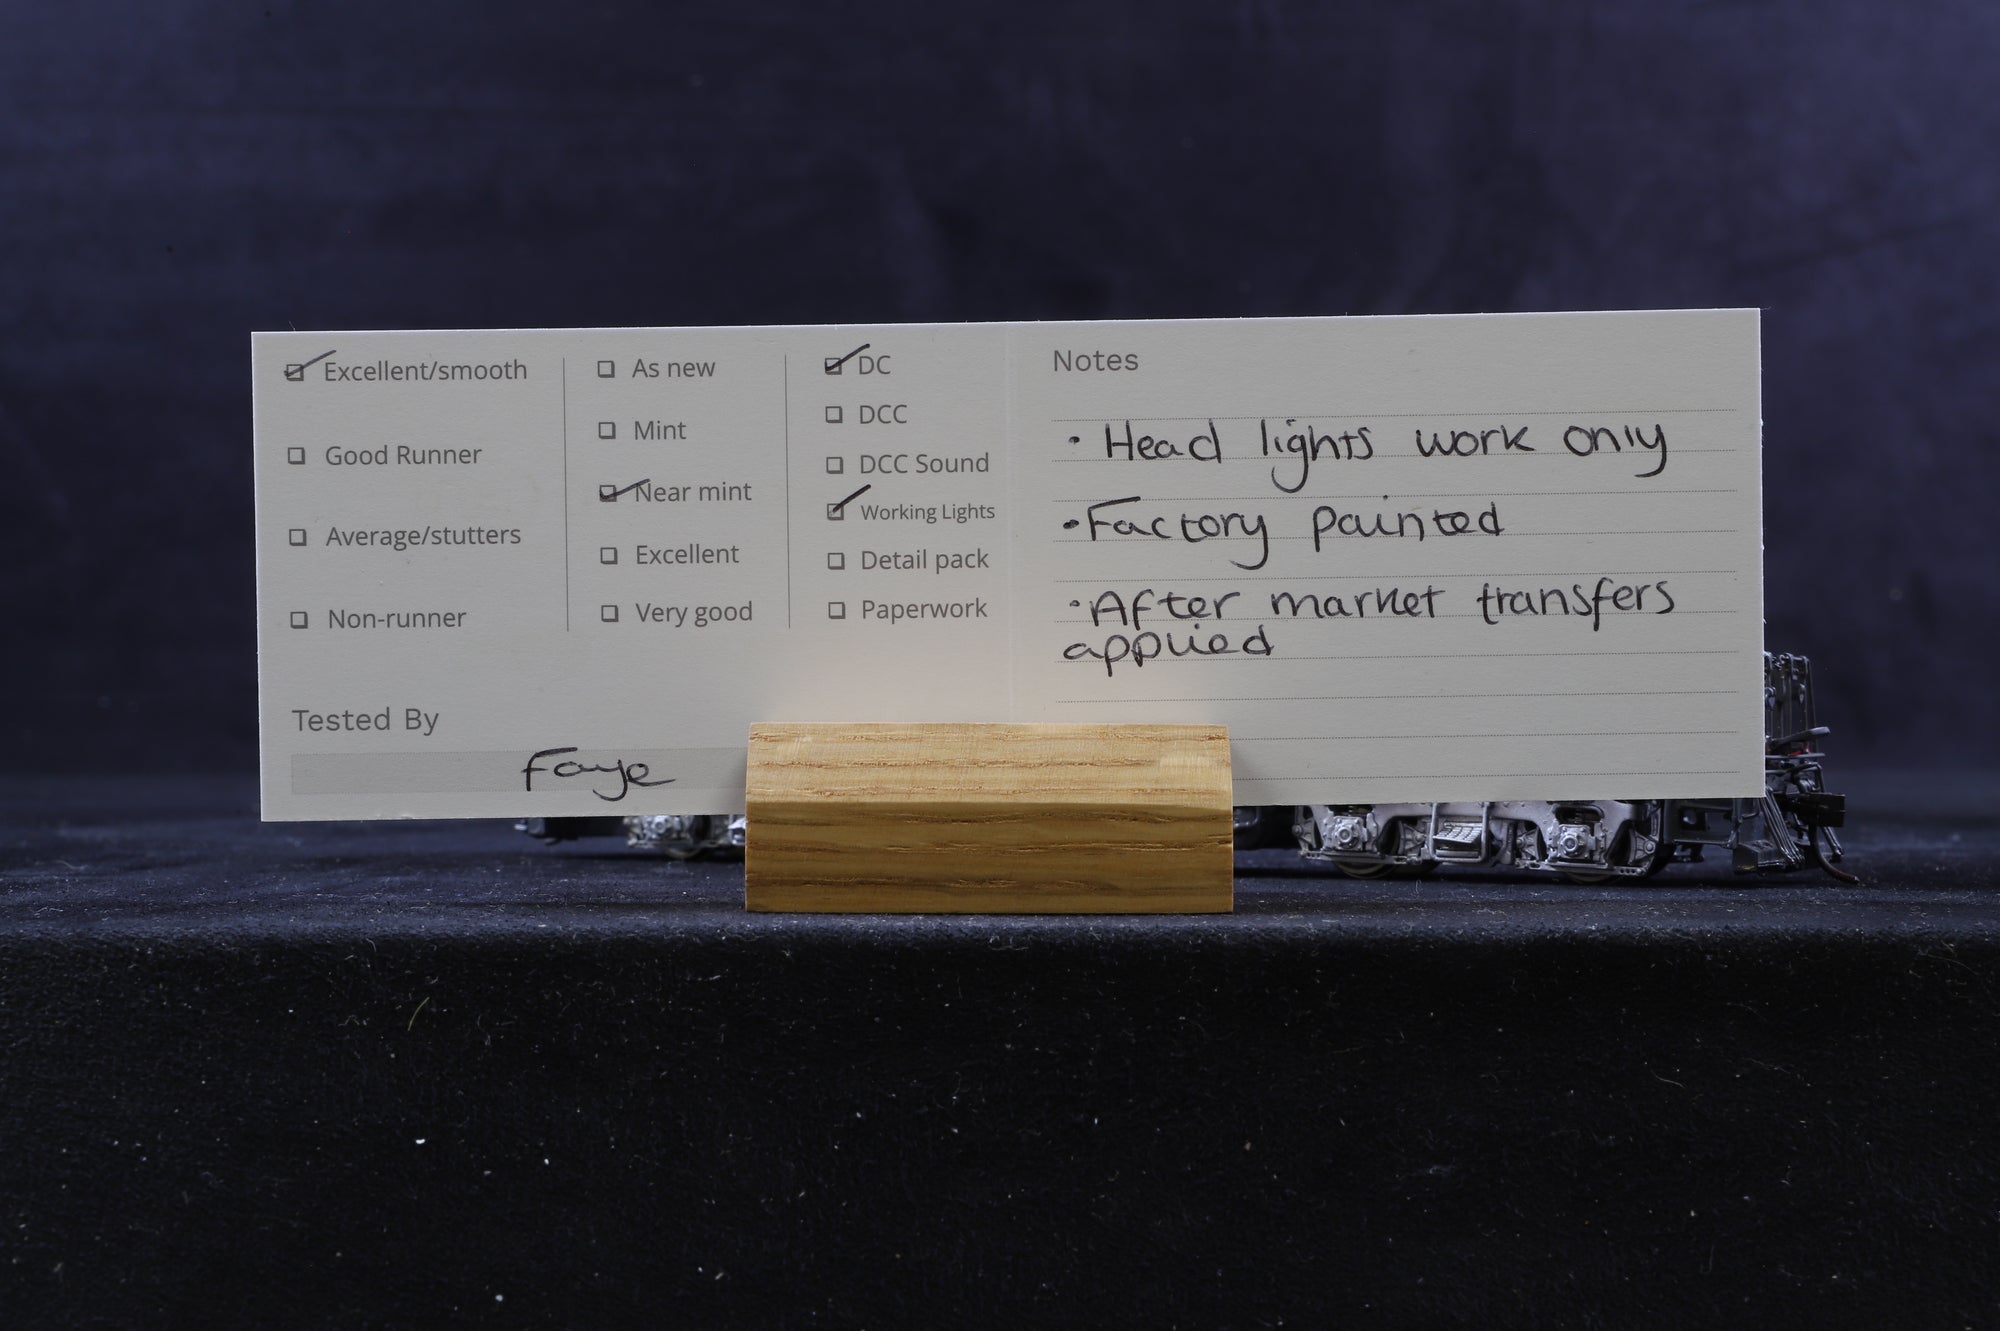 Excellent/smooth
Good Runner
Average/stutters
Non-runner
As new
Mint
Near mint
Excellent
Very good
DC
DCC
DCC Sound
Working Lights
Detail pack
Paperwork
Tested By
Faye
Notes
• Head lights work only
• Factory painted
• After market transfers
applied